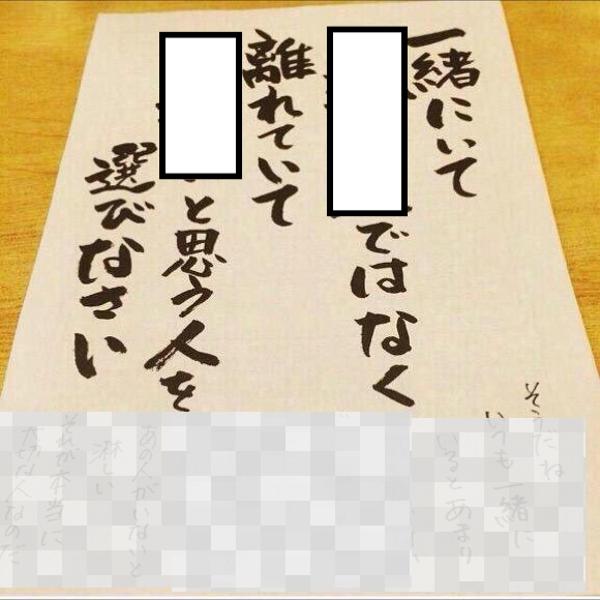 一緒にいて
ではなく
離れていて
と思う人を
選びなさい
そうだね
いつも一緒に
いるとあまり
あの人がいないと
淋しい
それが本当に
大切な人なのだ